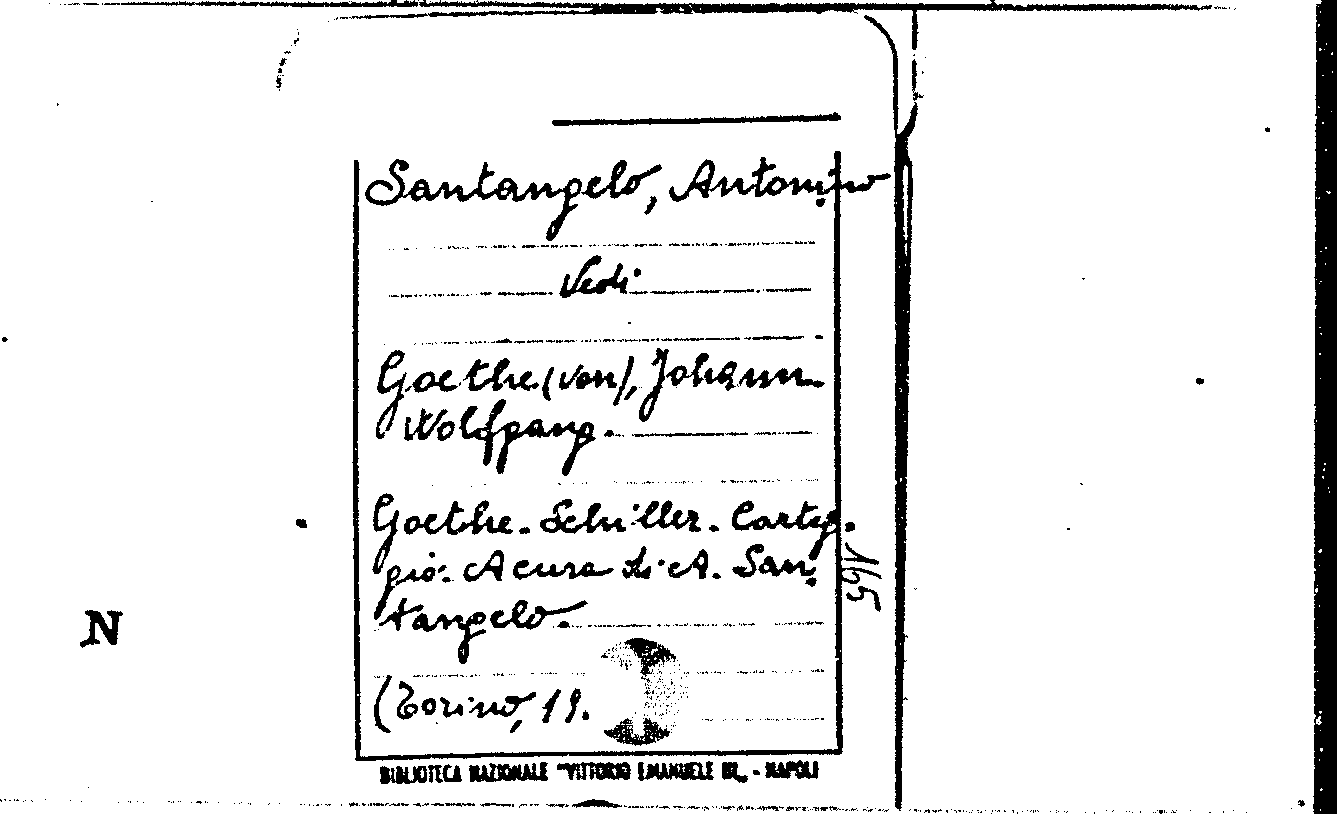 Santangelo, Antonino
Vedi
Goethe (von), Johann
Wolfgang.
Goethe. Schiller. Carteg.
gio. A cura di A. San.
tangelo.
(Torino, 19.
165
N
BIBLIOTECA NAZIONALE "VITTORIO EMANUELE III„ - NAPOLI